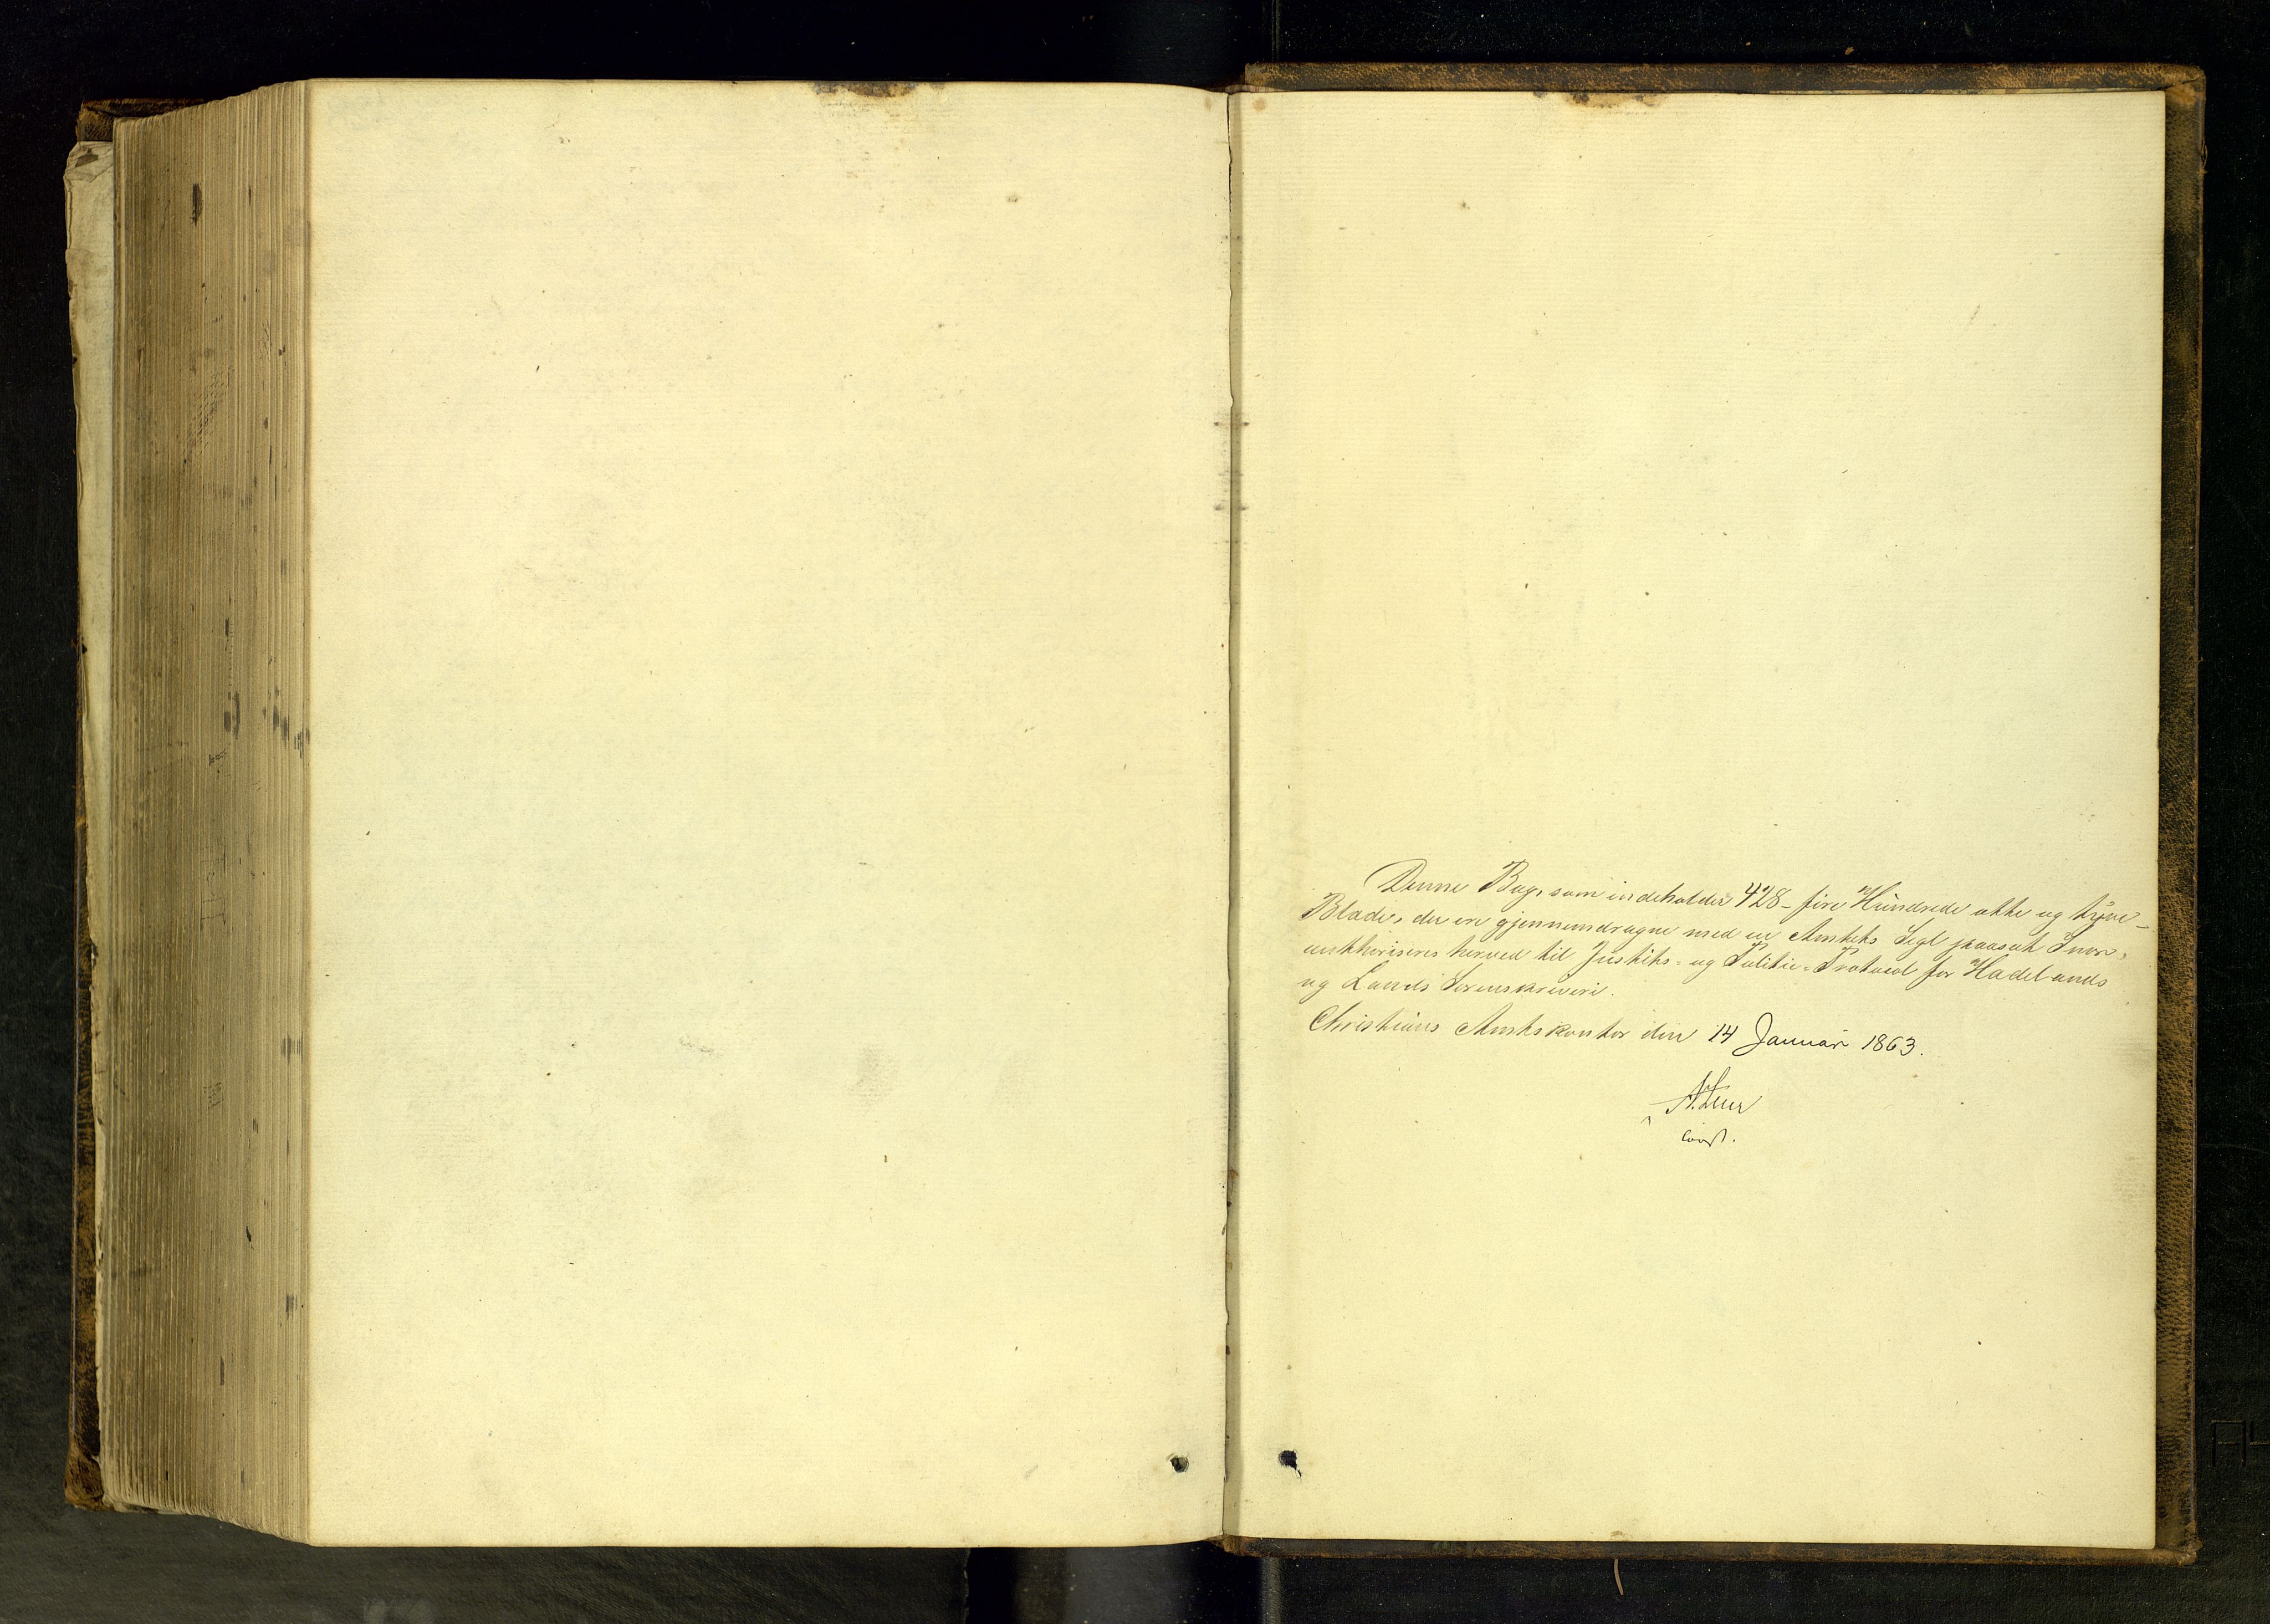 Denne Bog, som indeholder 428 – fire Hundrede otte og tyve –
Blade, der ere gjennemdragne med en Amtets Segl paasat Snor,
authoriseres herved til Justits- og Politie-Protocol for Hadelands
og Lands Sorenskriveri.
Christians Amtskontor den 14 Januar 1863.
const.